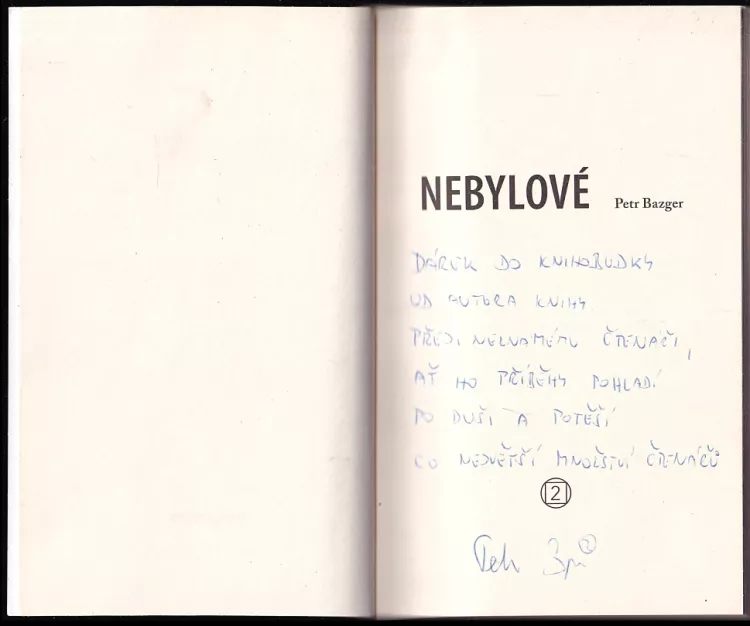 NEBYLOVÉ Petr Bazger
DÁREK DO KNIHOBUDKY
OD AUTORA KNIHY
NEZNÁMÉMU ČTENÁŘI,
AŤ HO PŘÍBĚHY POHLADÍ
PO DUŠI A POTĚŠÍ
CO NEJVĚTŠÍ MNOŽSTVÍ ČTENÁŘŮ
2
Petr